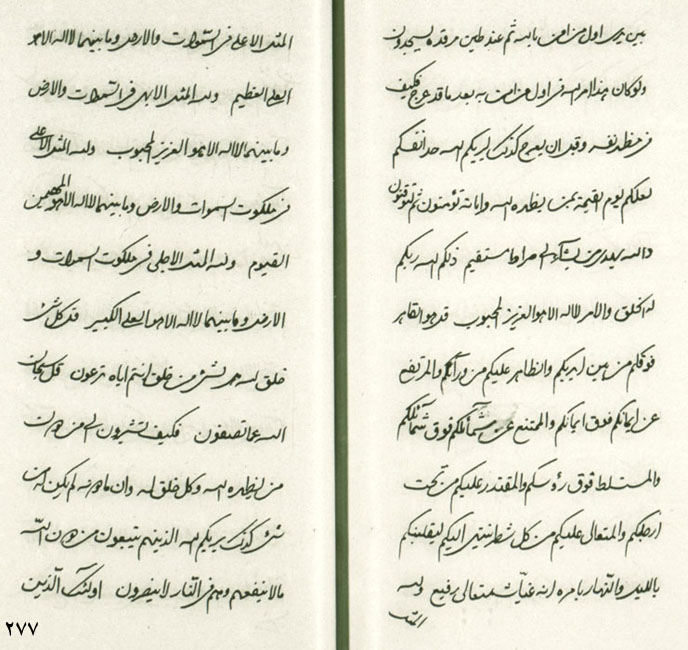 بين يدى اول من امن بالله ثم عند طين مرقده يسجدون
ولو كان هذا امر الله فى اول من امن به بعد ما قد عرج فكيف
فى مظهر نفسه وقبل ان يعرج كذلك يريكم الله حد انفسكم
لعلكم يوم القيمة بمن يظهره الله واياته تؤمنون ثم توقنون
والله يهدى من يشاء الى صراط مستقيم ذلكم الله ربكم
له الخلق والامر لا اله الا هو العزيز المحبوب قد هو القاهر
فوقكم من بين ايديكم والظاهر عليكم من ورائكم والمرتفع
عن ايمانكم فوق ايمانكم والممتنع عن شمائلكم فوق شمائلكم
والمتسلط فوق رؤسكم والمقتدر عليكم من تحت
ارجلكم والمتعالى عليكم من كل شطر ينتهى اليكم ليقلبنكم
بالليل والنهار بامره انه غياث متعالى رفيع ولله
المثل
المثل الاعلى فى السموات والارض وما بينهما لا اله الا هو
العلى العظيم ولله المثل الابهى فى السموات والارض
وما بينهما لا اله الا هو العزيز المحبوب ولله المثل الاعلى
فى ملكوت السموات والارض وما بينهما لا اله الا هو المهيمن
القيوم ولله المثل الاجلى فى ملكوت السموات و
الارض وما بينهما لا اله الا هو العلى الكبير قد كل شئ
خلق لله من شئ من خلق انتم اياه تدعون قل سبحان
الله عما تصفون فكيف تشيرون الى من دون
من يظهره الله وكل خلق له وان ما دونه لم يكن له من
شئ كذلك يريكم الله الذينهم يتبعون من دون الله
ما لا ينفعهم وهم فى النار لا ينصرون اولئك الذين
٢٧٧